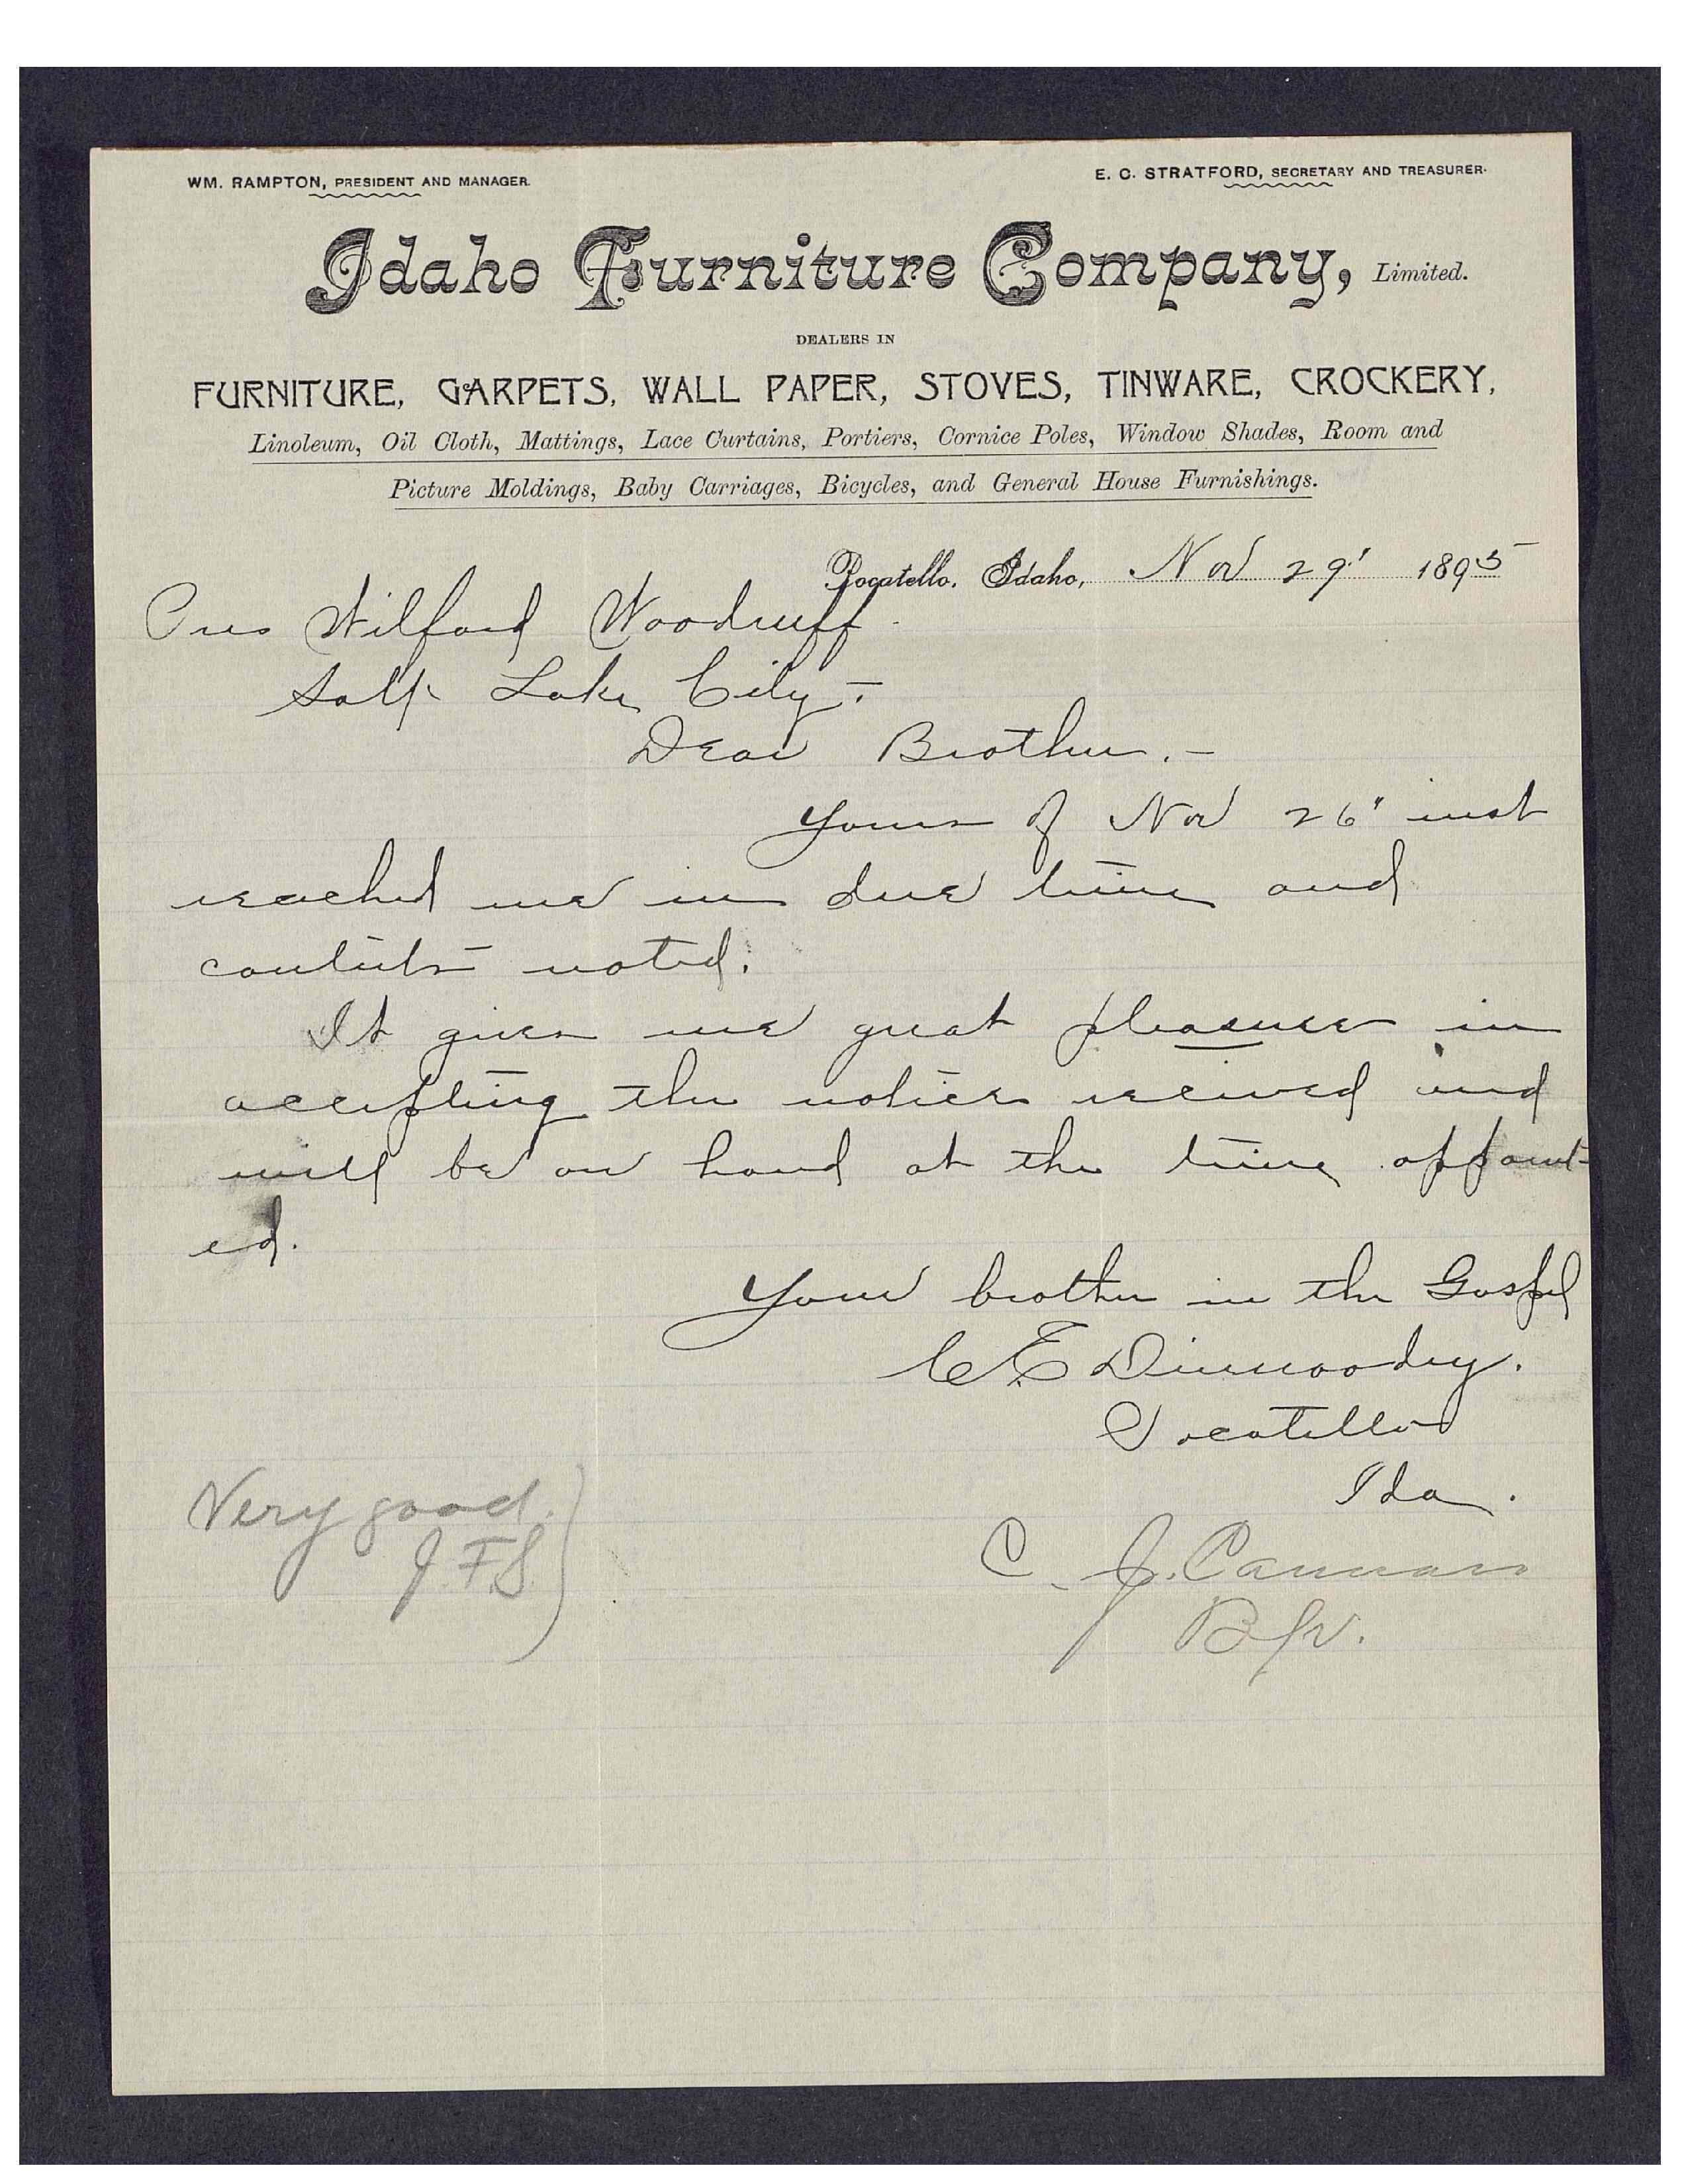 WM. RAMPTON, PRESIDENT AND MANAGER.
E. C. STRATFORD, SECRETARY AND TREASURER.
Idaho Furniture Company, Limited.
DEALERS IN
FURNITURE, CARPETS, WALL PAPER, STOVES, TINWARE, CROCKERY,
Linoleum, Oil Cloth, Mattings, Lace Curtains, Portiers, Cornice Poles, Window Shades, Room and
Picture Moldings, Baby Carriages, Bicycles, and General House Furnishings.
Pocatello, Idaho, Nov 29" 1895
Pres Wilford Woodruff
Salt Lake City.-
Dear Brother.-
Yours of Nov 26" inst
reached me in due time and
contents noted.
It gives me great pleasure in
accepting the notice received and
will be on hand at the time appoint-
ed.
Your brother in the Gospel
C E Dinwoodey.
Pocatello
Ida.
Very good.
J.F.S.
C. J. Cannan
Bp.